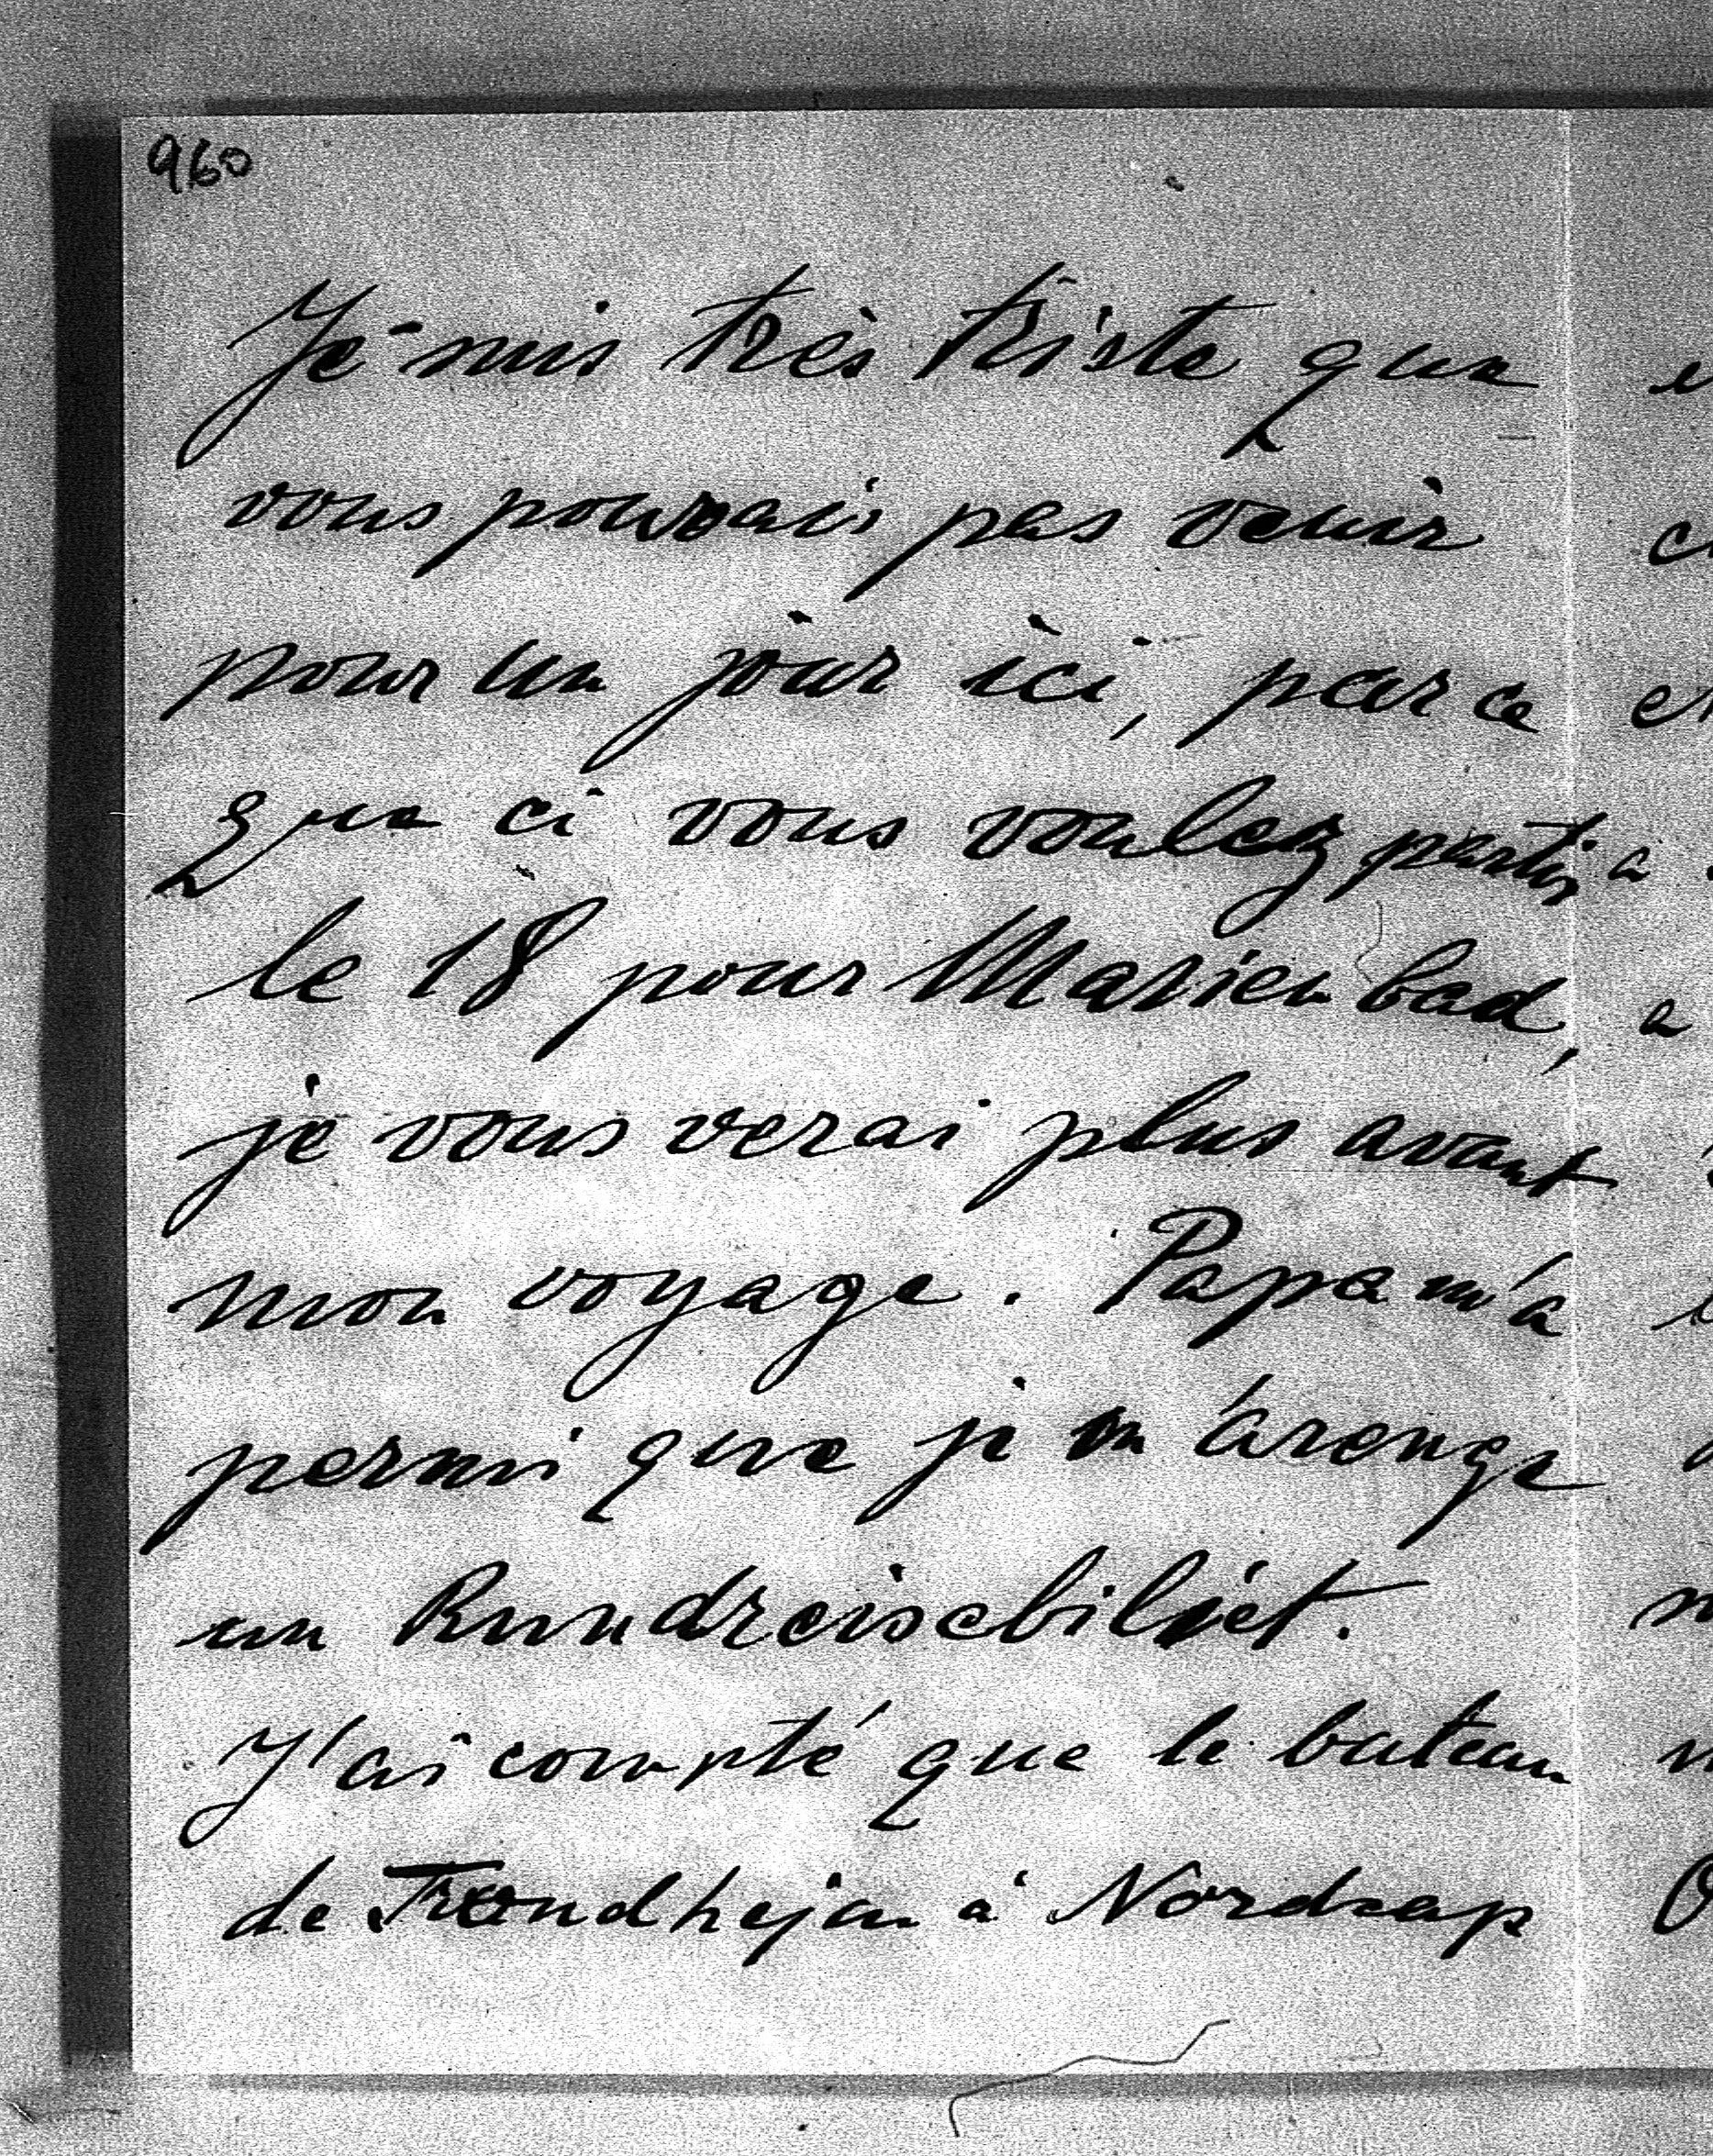 960
Je suis très triste que
vous pourrais pas venir
pour un jour ici, parce
que ci vous voulez partir
le 18 pour Marienbad,
je vous verai plus avant
mon voyage. Papa m'a
permi que je m'arenge
un Rundreisebiliét.
J'ai compté que le bateau
de Trondhejm à Nordcap